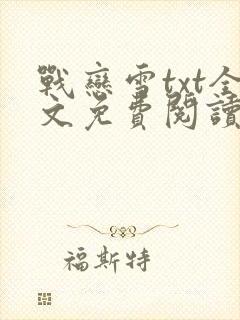 戰戀雪txt全
文免費閱讀
福斯特